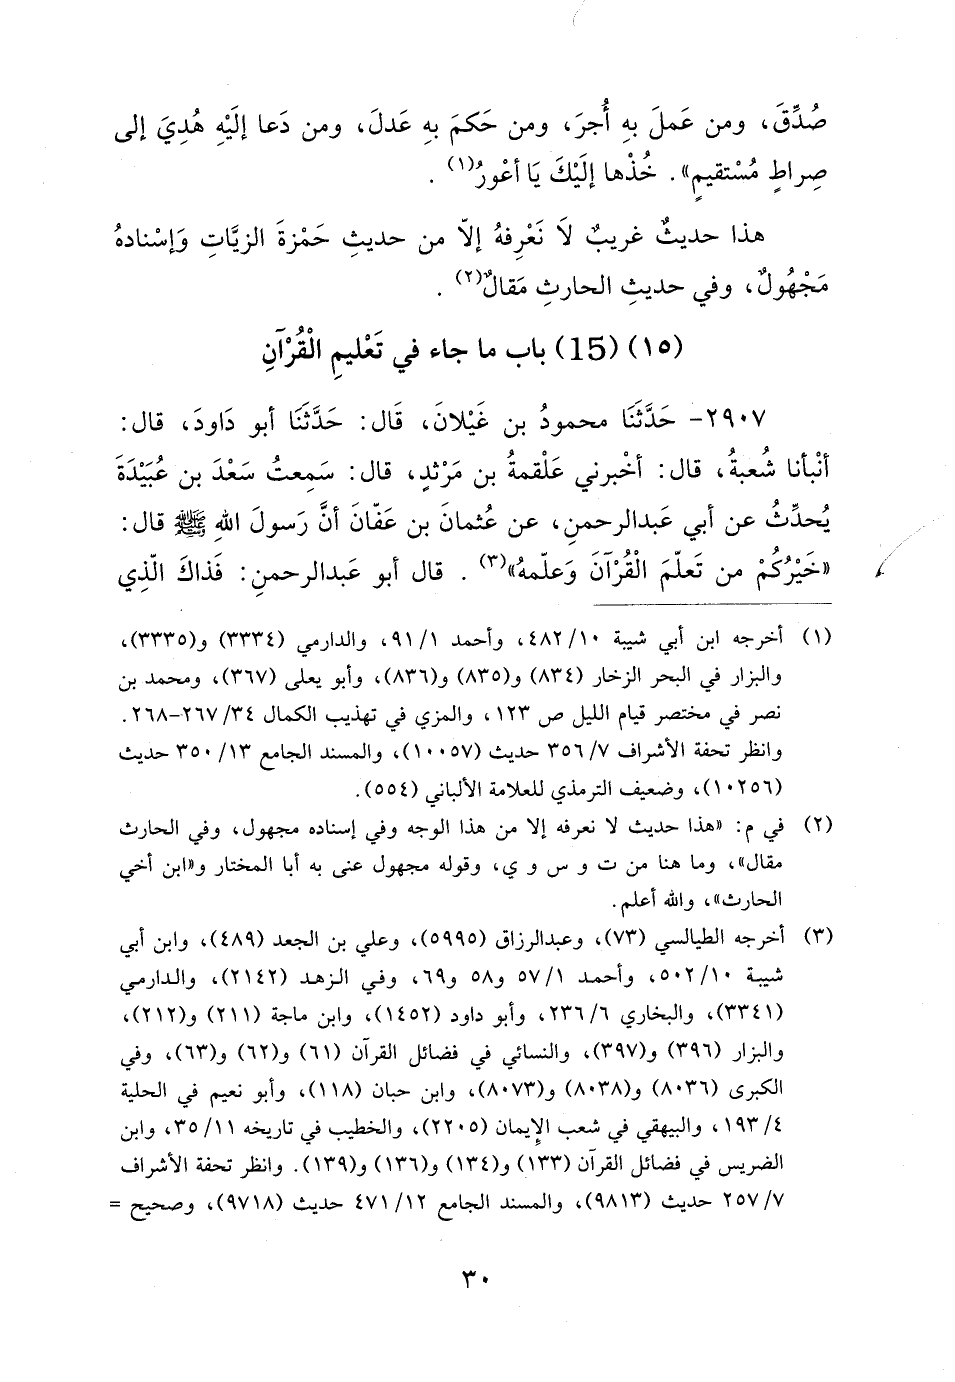 صُدِّقَ، ومن عَملَ بِهِ أُجرَ، ومن حَكمَ بِهِ عَدلَ، ومن دَعا إلَيْهِ هُدِيَ إلى
صِراطٍ مُسْتقيمٍ». خُذْها إلَيْكَ يَا أعْورُ(١) .
هذا حديثٌ غريبٌ لَا نَعْرِفهُ إلاّ من حديثِ حَمْزةَ الزيَّاتِ وَإسْنادهُ
مَجْهُولٌ، وفي حديثِ الحارثِ مَقالٌ(٢) .
(١٥) (15) باب ما جاء في تَعْليمِ الْقُرْآنِ
٢٩٠٧- حَدَّثَنَا محمودُ بن غَيْلانَ، قَال: حَدَّثَنَا أبو دَاودَ، قال:
أنْبأنا شُعبةُ، قال: أخْبرني عَلْقمةُ بن مَرْثدٍ، قال: سَمِعتُ سَعْدَ بن عُبَيْدَةَ
يُحدِّثُ عن أبي عَبدالرحمنِ، عن عُثمانَ بن عَفّانَ أنَّ رَسولَ اللهِ ﷺ قال:
«خَيْرُكُمْ من تَعلّمَ الْقُرْآنَ وَعلّمهُ»(٣) . قال أبو عَبدالرحمنِ: فَذاكَ الّذِي
(١) أخرجه ابن أبي شيبة ١٠/ ٤٨٢، وأحمد ١/ ٩١، والدارمي (٣٣٣٤) و(٣٣٣٥)،
والبزار في البحر الزخار (٨٣٤) و(٨٣٥) و(٨٣٦)، وأبو يعلى (٣٦٧)، ومحمد بن
نصر في مختصر قيام الليل ص ١٢٣، والمزي في تهذيب الكمال ٣٤/ ٢٦٧-٢٦٨.
وانظر تحفة الأشراف ٧/ ٣٥٦ حديث (١٠٠٥٧)، والمسند الجامع ١٣/ ٣٥٠ حديث
(١٠٢٥٦)، وضعيف الترمذي للعلامة الألباني (٥٥٤).
(٢) في م: «هذا حديث لا نعرفه إلا من هذا الوجه وفي إسناده مجهول، وفي الحارث
مقال»، وما هنا من ت و س و ي، وقوله مجهول عنى به أبا المختار و«ابن أخي
الحارث»، والله أعلم.
(٣) أخرجه الطيالسي (٧٣)، وعبدالرزاق (٥٩٩٥)، وعلي بن الجعد (٤٨٩)، وابن أبي
شيبة ١٠/ ٥٠٢، وأحمد ١/ ٥٧ و٥٨ و٦٩، وفي الزهد (٢١٤٢)، والدارمي
(٣٣٤١)، والبخاري ٦/ ٢٣٦، وأبو داود (١٤٥٢)، وابن ماجة (٢١١) و(٢١٢)،
والبزار (٣٩٦) و(٣٩٧)، والنسائي في فضائل القرآن (٦١) و(٦٢) و(٦٣)، وفي
الكبرى (٨٠٣٦) و(٨٠٣٨) و(٨٠٧٣)، وابن حبان (١١٨)، وأبو نعيم في الحلية
٤/ ١٩٣، والبيهقي في شعب الإيمان (٢٢٠٥)، والخطيب في تاريخه ١١/ ٣٥، وابن
الضريس في فضائل القرآن (١٣٣) و(١٣٤) و(١٣٦) و(١٣٩). وانظر تحفة الأشراف
٧/ ٢٥٧ حديث (٩٨١٣)، والمسند الجامع ١٢/ ٤٧١ حديث (٩٧١٨)، وصحيح =
٣٠